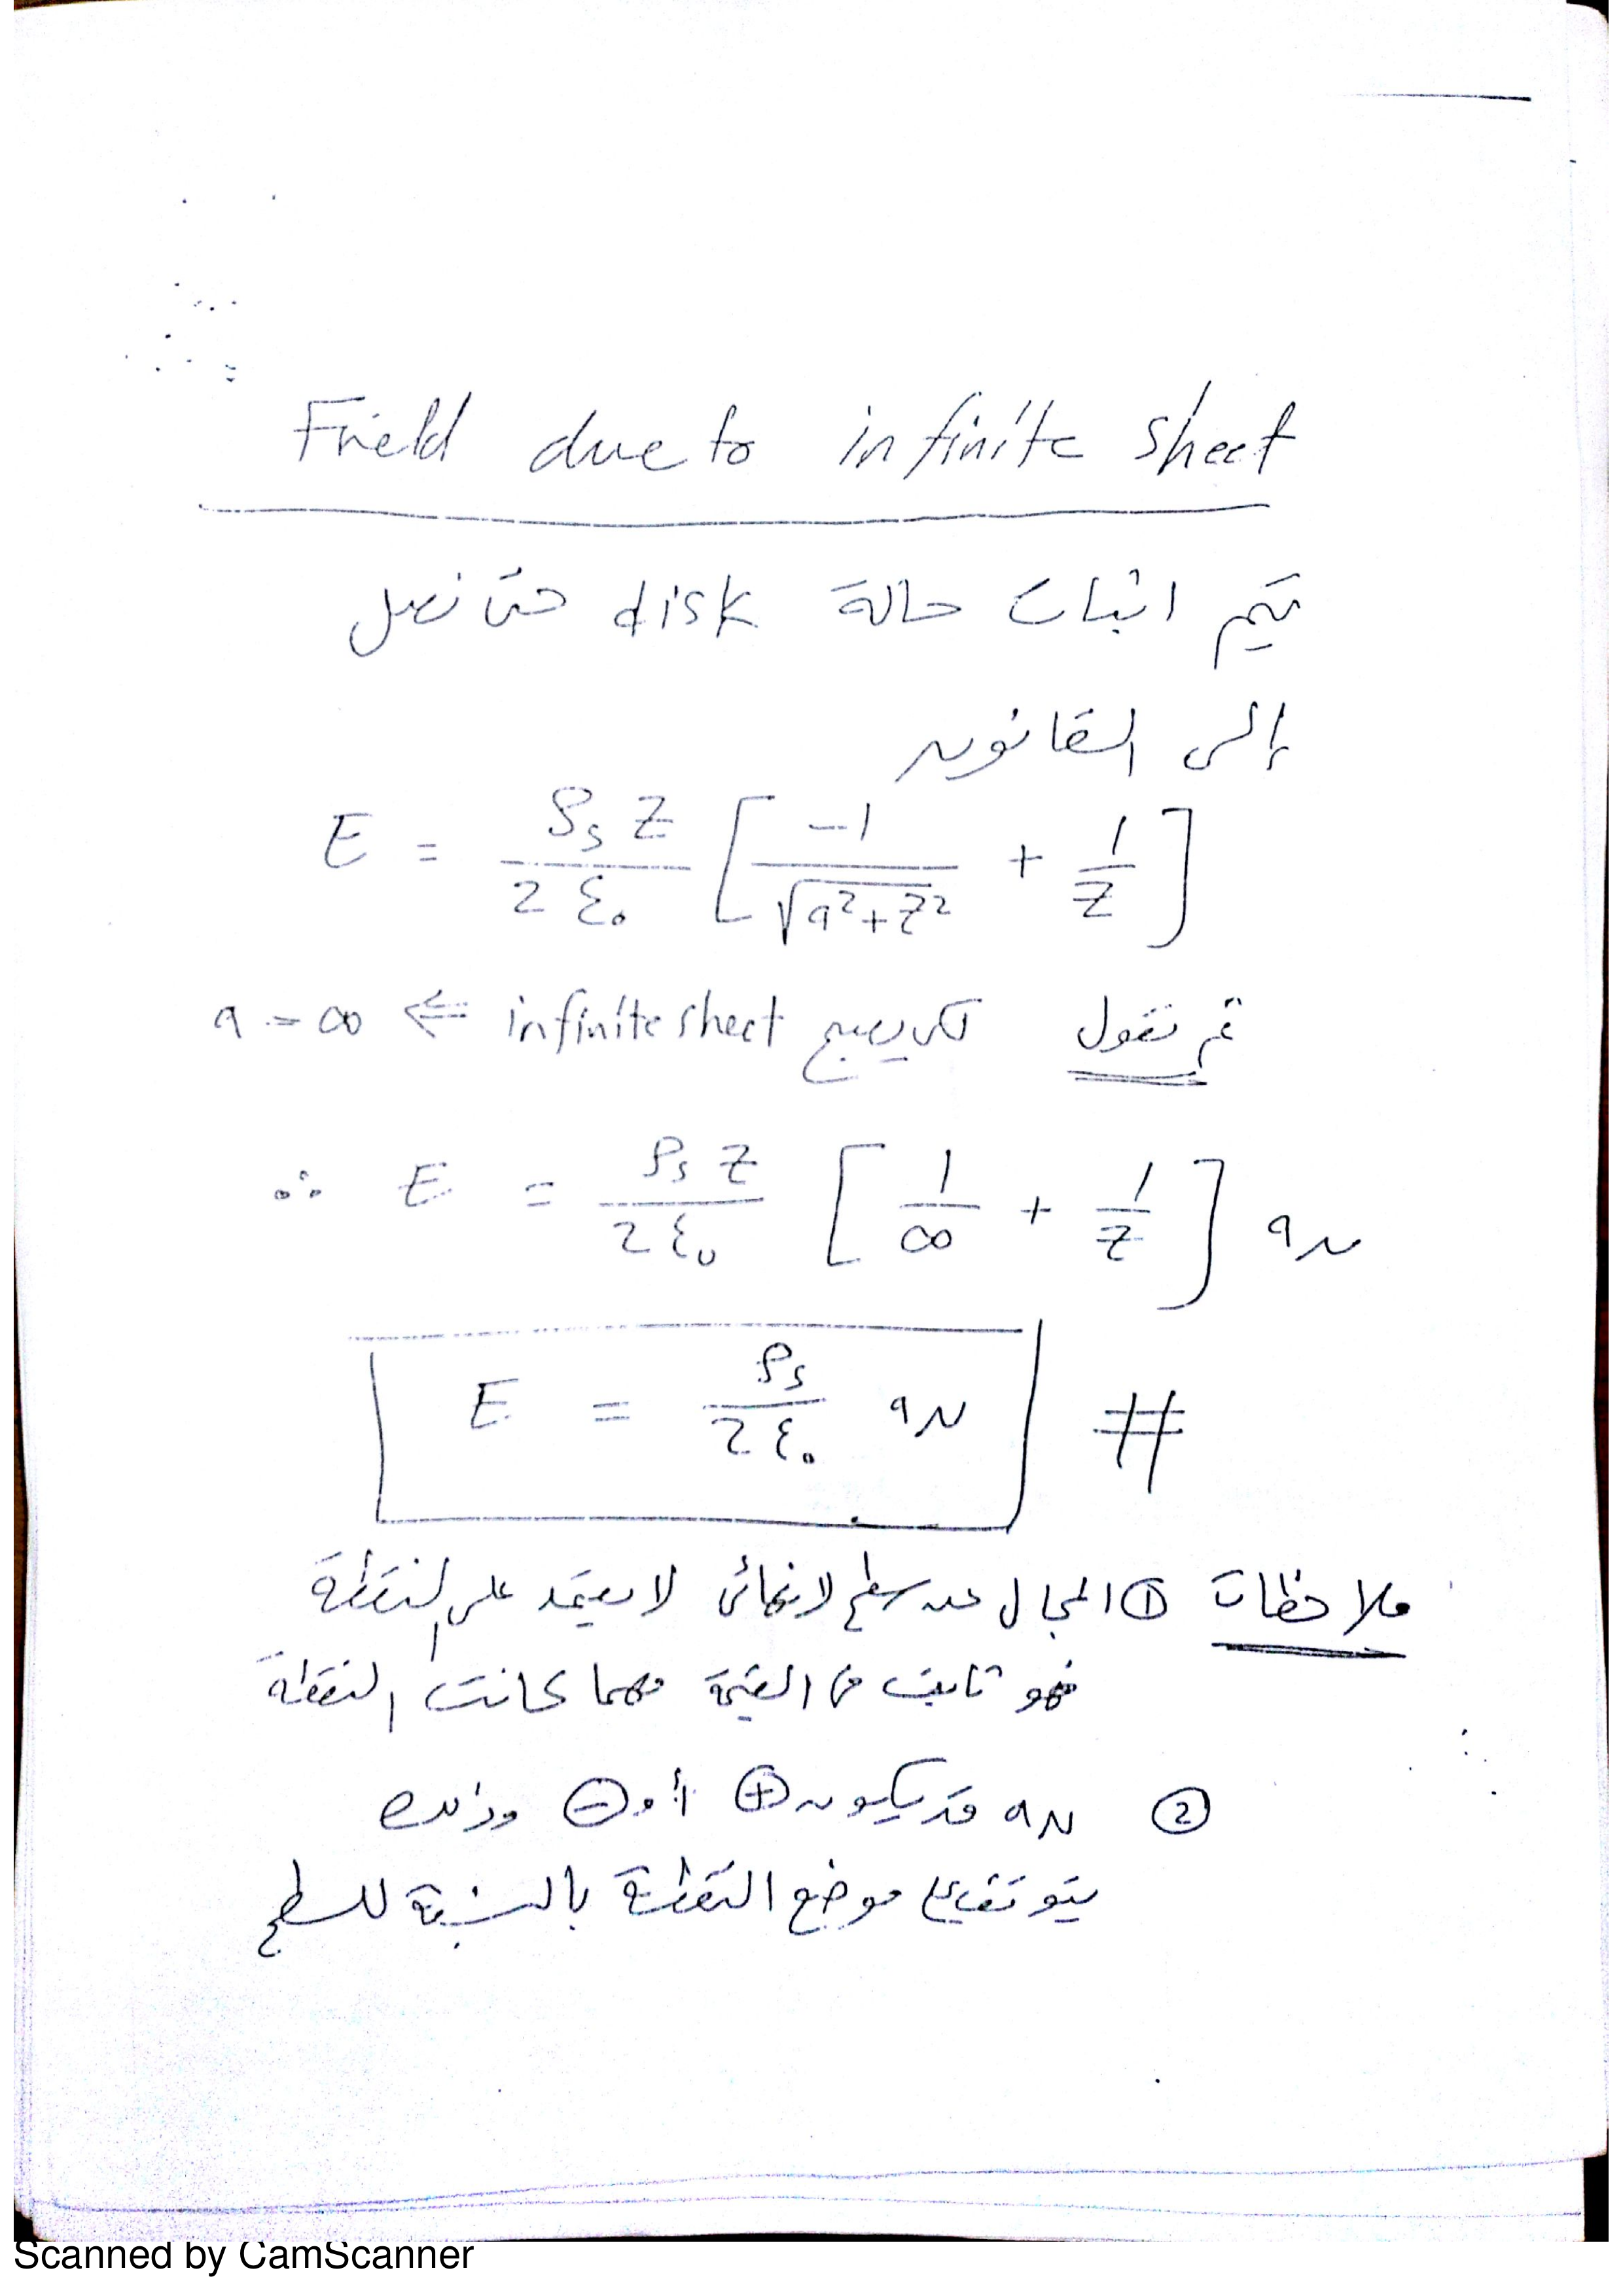 Field due to infinite sheet
يتم اثبات حالة disk حتى نصل
إلى القانون
E = ρs z / 2 ε₀ [ -1 / √(a² + z²) + 1/z ]
ثم نقول لكى يصبح infinite sheet ⇐ a = ∞
∴ E = ρs z / 2 ε₀ [ 1/∞ + 1/z ] aN
E = ρs / 2 ε₀ aN #
ملاحظات ① المجال عن سطح لانهائى لا يعتمد على النقطة
فهو ثابت فى القيمة مهما كانت النقطة
② aN قد يكون ⊕ أو ⊖ وذلك
يتوقف على موضع النقطة بالنسبة للسطح
Scanned by CamScanner